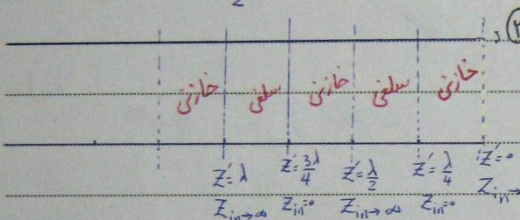 2
خازنی سلفی خازنی سلفی خازنی
Z'=λ Z'=3λ/4 Z'=λ/2 Z'=λ/4 Z'=0
Zin→∞ Zin=0 Zin→∞ Zin=0 Zin→